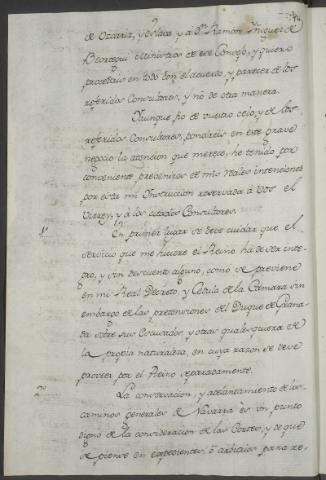 de Ozcariz, y Eslava y á Dn. Ramón Iñiguez de
Beortegui Ministros de ese Consejo, y quiero
procedais en todo con el acuerdo, y parecer de los
referidos Consultores, y no de otra manera.
Aunque fio de vuestro celo, y de los
referidos Consultores, pondreis en este grave
negocio la atencion que merece, he tenido por
conveniente preveniros de mis Reales intenciones
por esta mi Instruccion reservada á vos el
Virrey, y á los citados Consultores.
1ª En primer lugar se debe cuidar que el
servicio que me hiciere el Reino ha de ser inte-
gro, y sin descuento alguno, como se previene
en mi Real Decreto, y Cedula de la Camara sin
embargo de las pretensiones del Duque de Grana-
da sobre sus Escusados y otras qualesquiera de
la propia naturaleza, en cuya razon se debe
proveer por el Reino separadamente.
2ª La conservacion, y adelantamiento de los
caminos generales de Navarra es un punto
digno de la consideracion de las Cortes, y de que
se piense en expedientes, ó arbitrios para re-